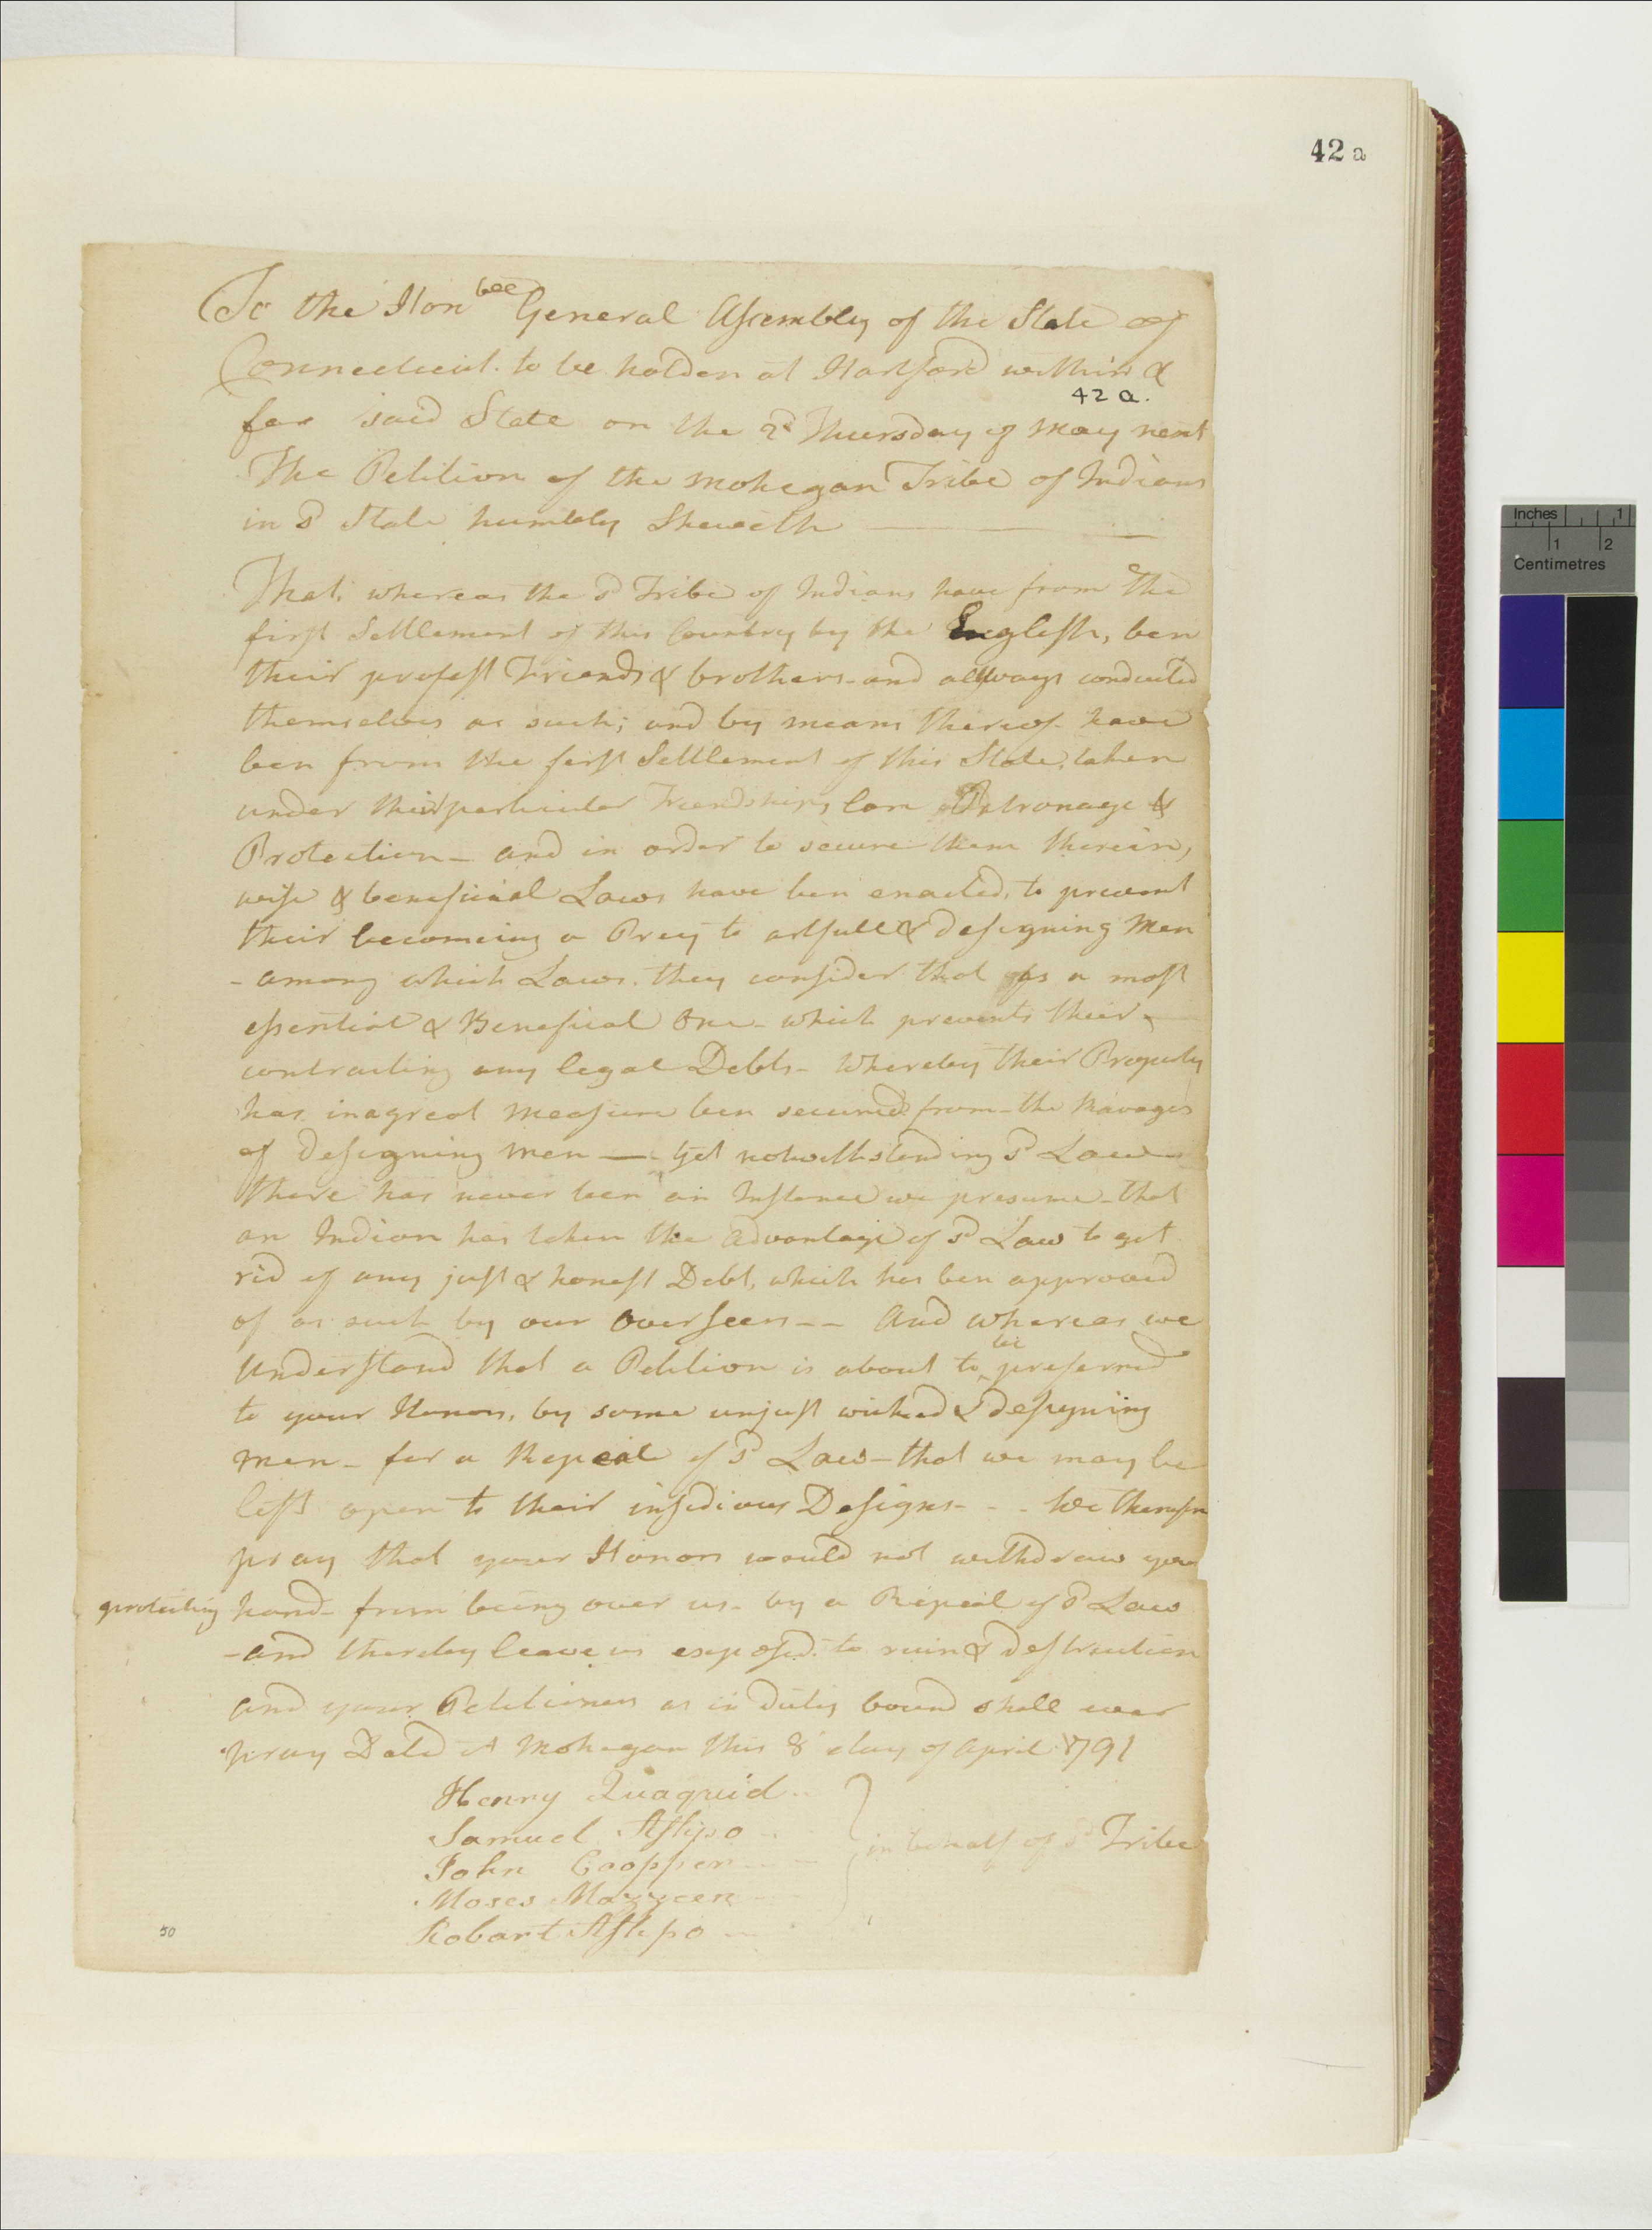 42 a
To the Honble General Assembly of the State of
Connecticut. to be holden at Hartford within &
42 a.
for said State on the 2d Thursday of May next
The Petition of the Mohegan Tribe of Indians
in sd State humbly Sheweth
That, whereas the sd Tribe of Indians have from the
first Settlement of this Country by the English, ben
their profest Friends & brothers - and allways conducted
themselves as such; and by means thereof have
ben from the first Settlement of this State, taken
under their particular Friendship, Care Patronage &
Protection - and in order to secure them therein,
wise & beneficial Laws have ben enacted, to prevent
their becomeing a Prey to artfull & designing Men
- among which Laws, they consider that as a most
essential & Beneficial One - which prevents their
contracting any legal Debts - Whereby their Property
has in a great Measure ben secured from - the Ravages
of designing men — Yet notwithstanding sd Law
there has never been an Instance we presume - that
an Indian has taken the advantage of sd Law to get
rid of any just & honest Debt, which has ben approved
of as such by our Overseers -- And whereas we
understand that a Petition is about to be preferred
to your Honors, by some unjust wicked & designing
men - for a Repeal of sd Law - that we may be
left open to their insidious Designs - - - We therefore
pray that your Honors would not withdraw your
protecting hand - from being over us - by a Repeal of sd Law
- and thereby leave us exposed to ruin & destruction
and your Petitioners as in duty bound shall ever
pray Dated at Mohegan this 8 day of April 1791
Henry Quaquid
Samuel Ashpo
in behalf of sd Tribe
John Coopper
Moses Mazzeen
Robart Ashpo
50